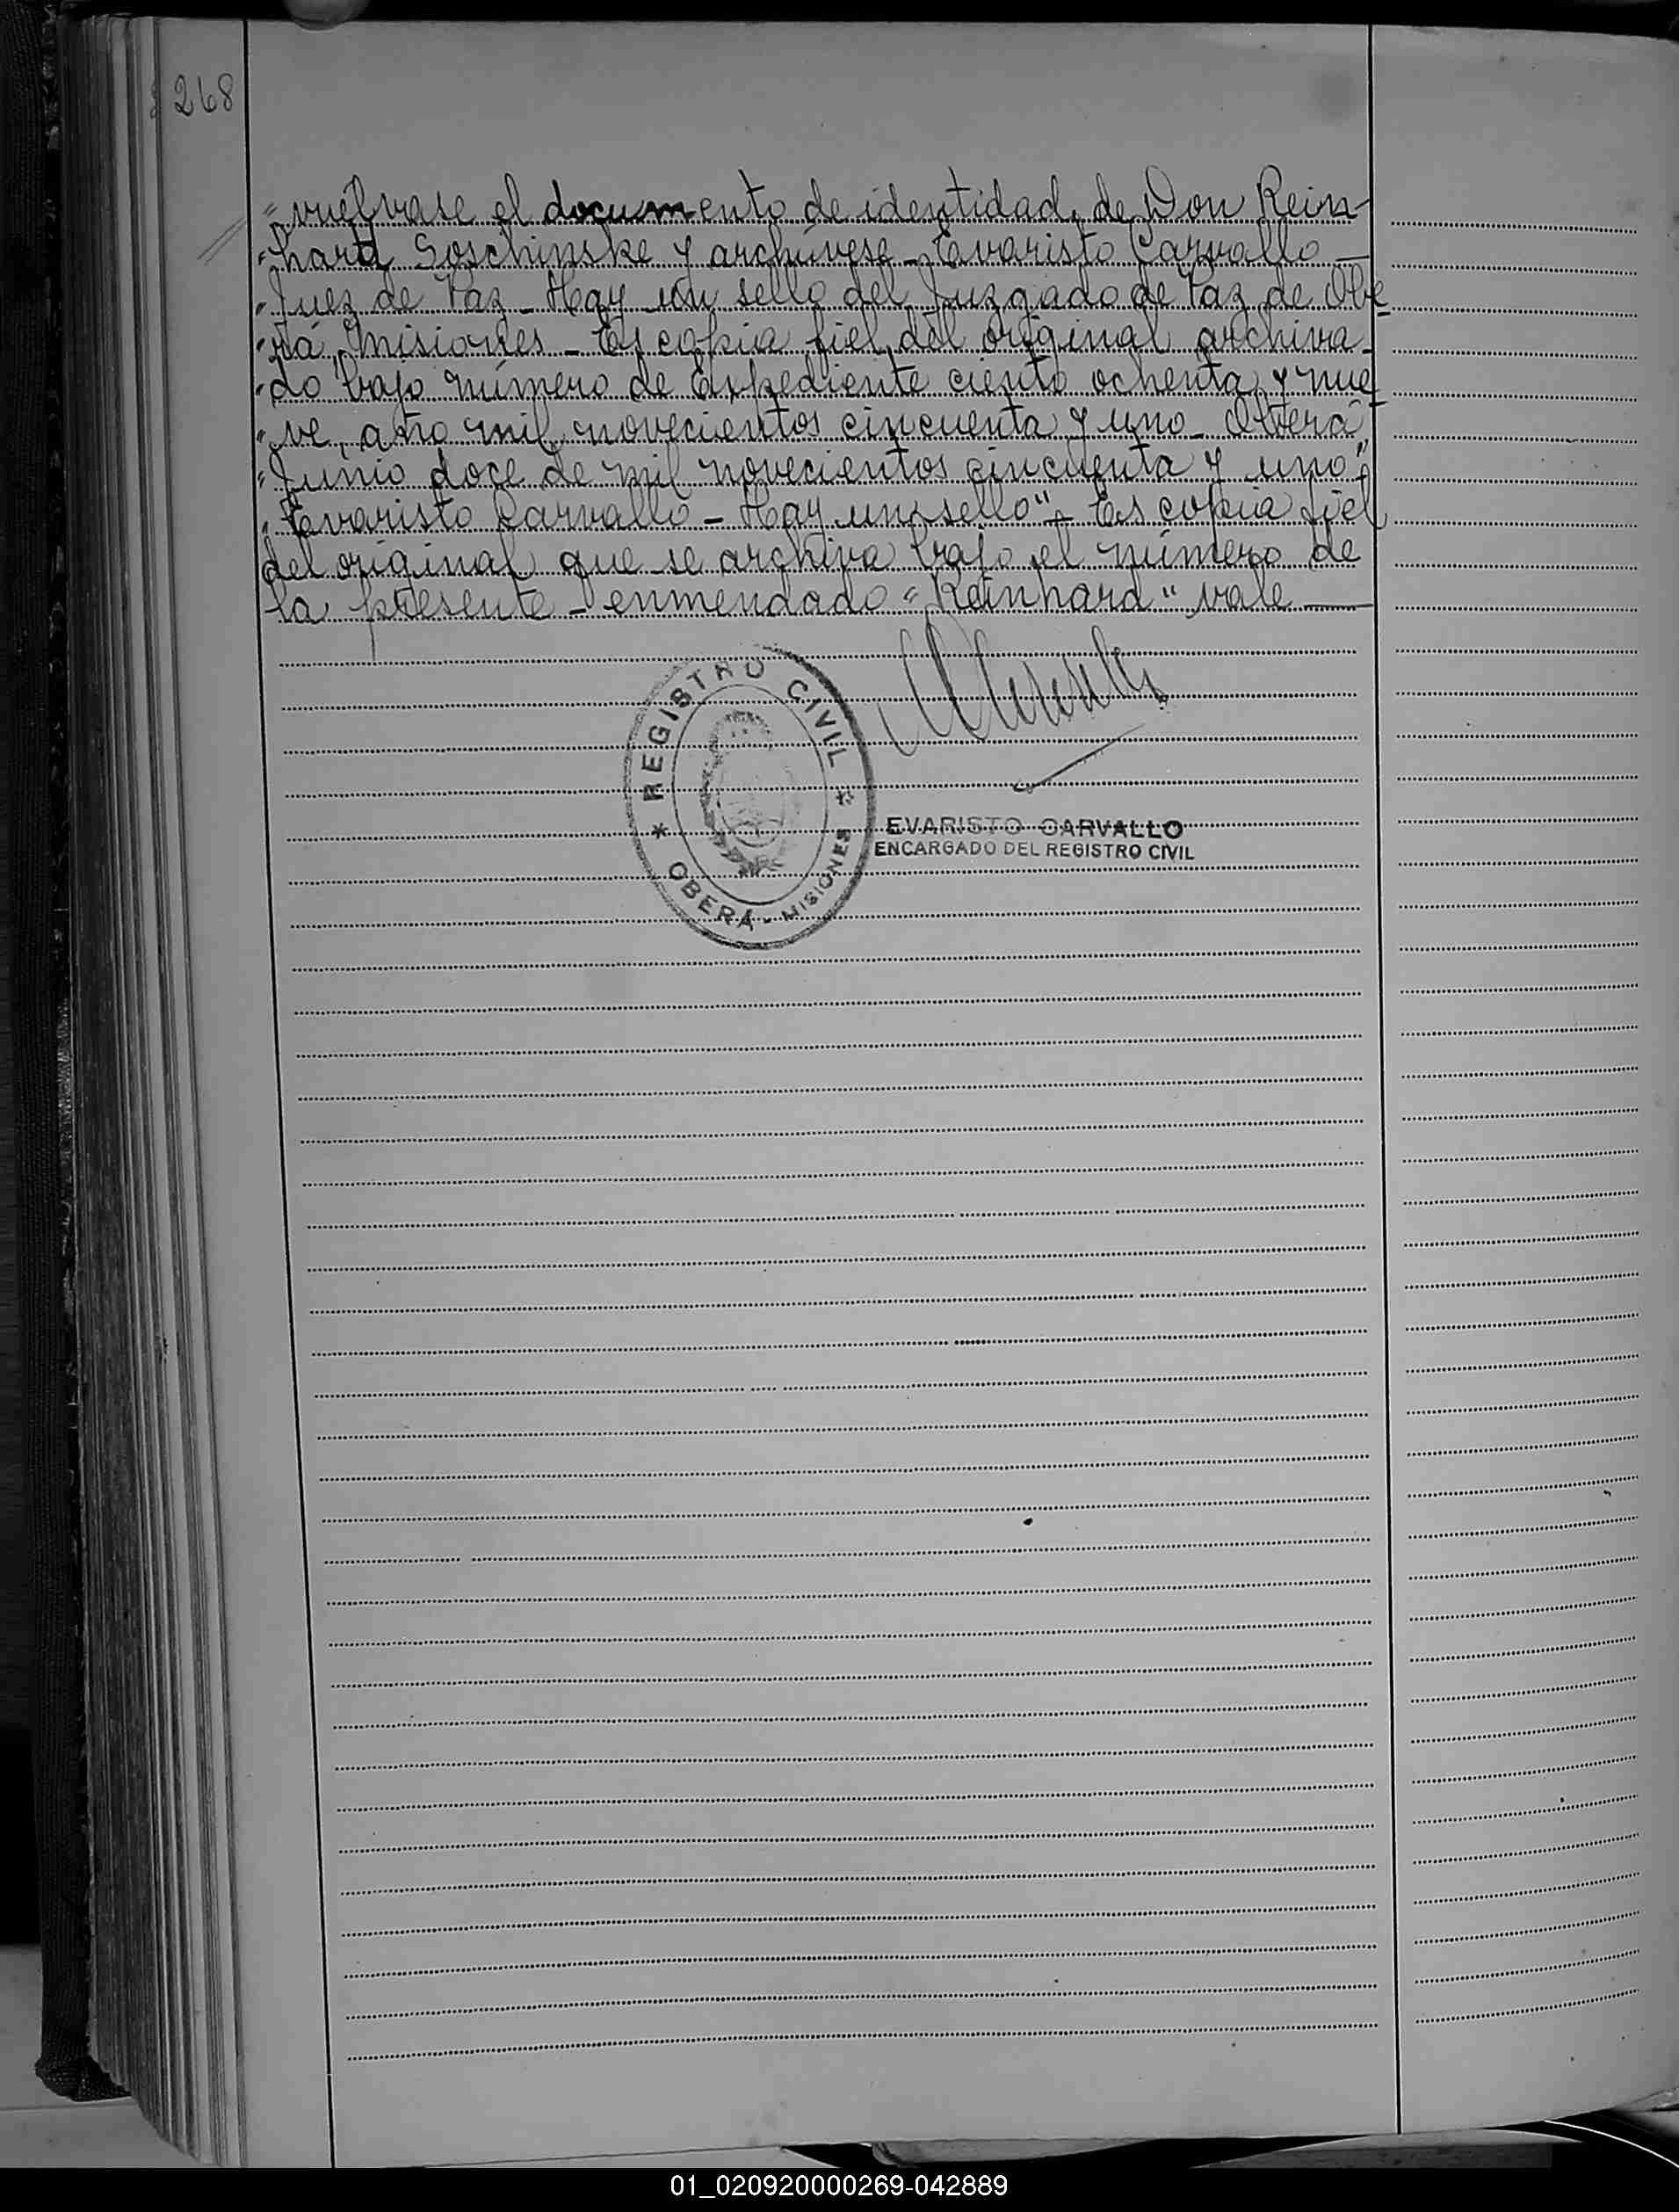 268
" vuélvase el documento de identidad, de Don Rein-
" hard Goschinske y archívese - Evaristo Carvallo —
" Juez de Paz - Hay un sello del Juzgado de Paz de Obe
" rá, Misiones - Es copia fiel del original archiva-
" do bajo número de Expediente ciento ochenta y nue
" ve, año mil novecientos cincuenta y uno - Oberá,
" Junio doce de mil novecientos cincuenta y uno" -
" Evaristo Carvallo - Hay un sello" - Es copia fiel
del original que se archiva bajo el número de
la presente - enmendado "Reinhard" vale —
REGISTRO CIVIL
* OBERÁ - MISIONES *
EVARISTO CARVALLO
ENCARGADO DEL REGISTRO CIVIL
01_020920000269-042889